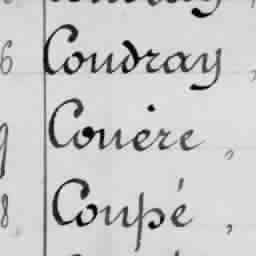 6 Coudray,
9 Couère,
8 Coupé,